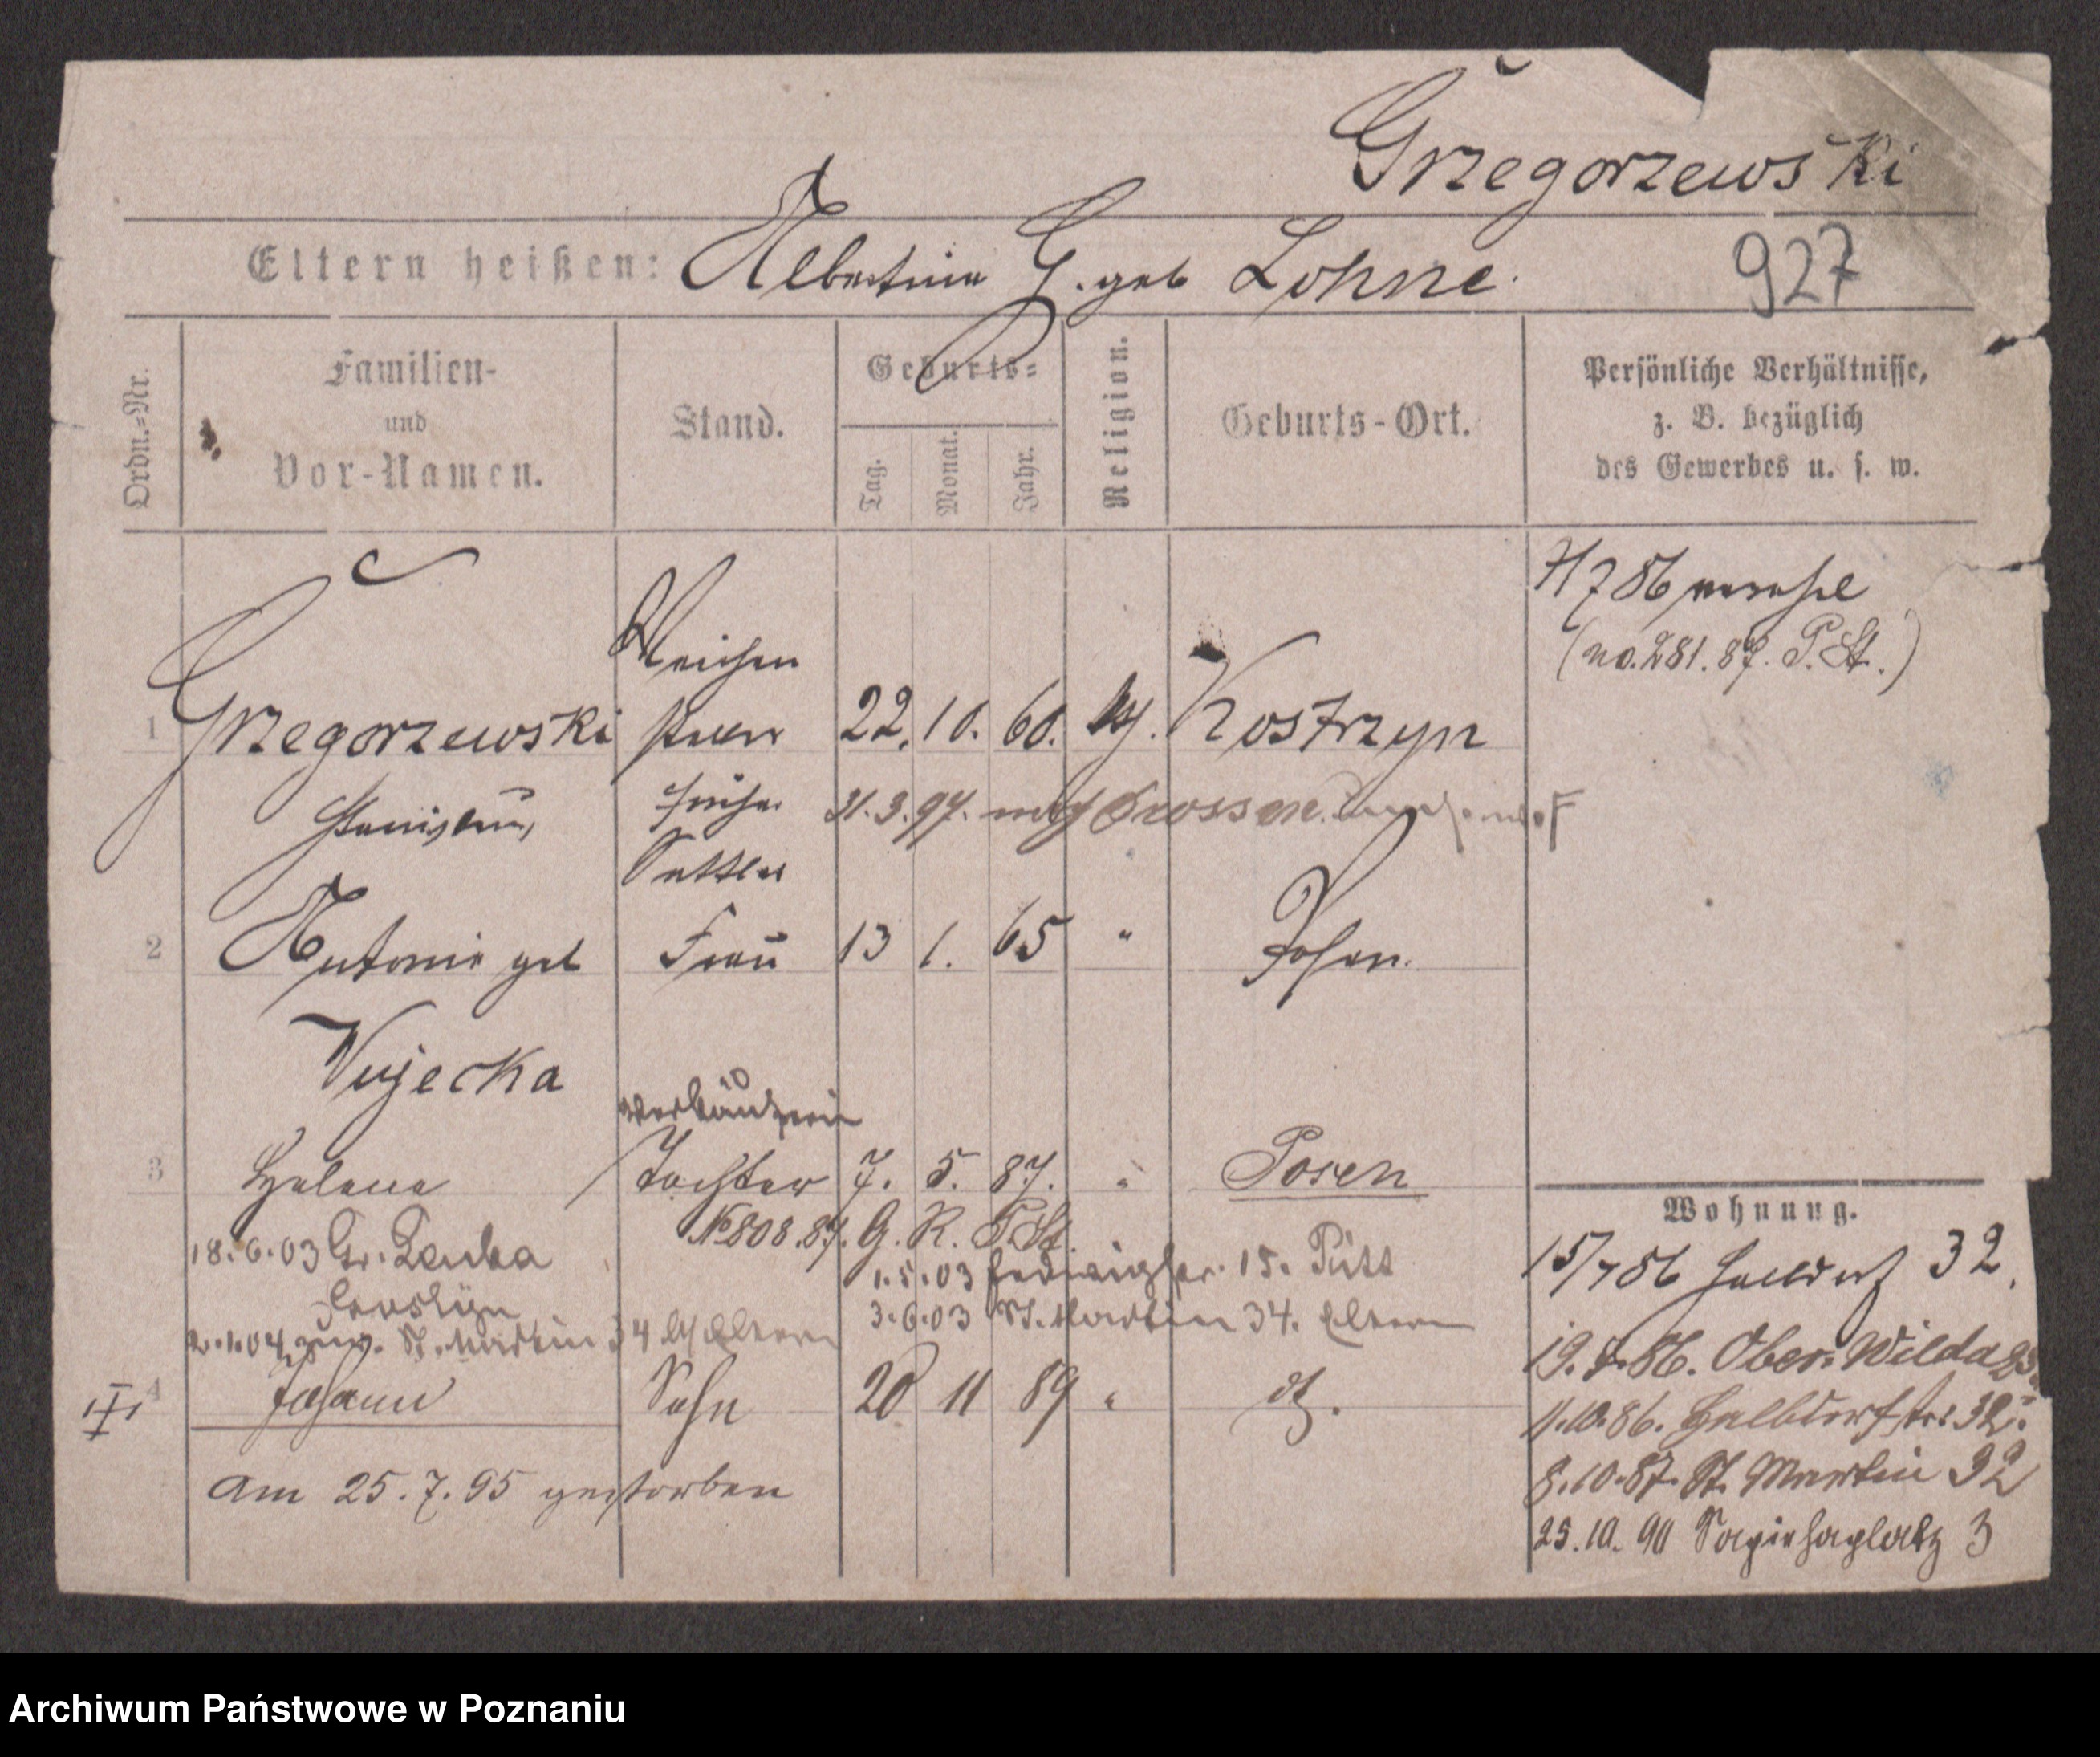 Grzegorzewski
Eltern heißen: Albertine G. geb Lohne.
927
Ordn.=Nr.
Familien-
und
Vor-Namen.
Stand.
Geburts=
Tag.
Monat.
Jahr.
Religion.
Geburts-Ort.
Persönliche Verhältnisse,
z. B. bezüglich
des Gewerbes u. s. w.
(no. 281. 87. P. St.)
Weichen
1 Grzegorzewski steller 22. 10. 60. kath. Kostrzyn
Stanislaus früher 31. 3. 97. nach Crossen
Sattler
2 Antonie geb Frau 13 1. 65 " Posen.
Wujecka
Verkäuferin
3 Helene Tochter 7. 5. 87. " Posen
No 808. 87. G. R. P. St.
18.6.03 Gr. Lenka
1.5.03 Hedwigstr. 15. Pitt
3.6.03 St. Martin 34. Eltern
2.1.04 zur. St. Martin 34 Eltern
4 Johann Sohn 20 11 89 "
III
am 25.7.95 gestorben
Wohnung.
15/7 86 Halbdorf 32.
19.7.86. Ober-Wilda
11.10.86. Halbdorfstr. 32.
8.10.87. St. Martin 32
25.10.90 Sapiehaplatz 3
Archiwum Państwowe w Poznaniu